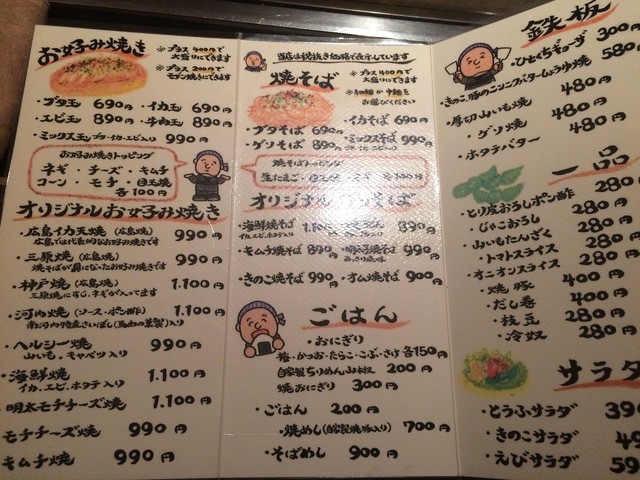 お好み焼き
※プラス400円で
大盛りにできます
※プラス200円で
モダン焼きにできます
・ブタ玉 690円 ・イカ玉 690円
・エビ玉 890円 ・牛肉玉 890円
・ミックス玉(ブタ・イカ・エビ入り) 990円
お好み焼きトッピング
ネギ・チーズ・キムチ
コーン・モチ・目玉焼
各100円
オリジナルお好み焼き
・広島イカ天焼(広島焼) 990円
広島では代表的なお好み焼きです
・三原焼(広島焼) 990円
焼そばが具になったお好み焼きです
・神戸焼(広島焼) 1.100円
三原焼にすじ、ネギが入ってます
・河内焼(ソース・ポン酢) 1.100円
・ヘルシー焼 990円
山いも、キャベツ入り
・海鮮焼 1.100円
イカ、エビ、ホタテ入り
・明太モチチーズ焼 1.100円
モチチーズ焼 990円
キムチ焼 990円
当店は税抜き価格で表示しています
焼そば
※プラス400円で
大盛りにできます
お選びください
・ブタそば 690円 ・イカそば 690円
・ゲソそば 890円 ・ミックスそば 990円
焼そばトッピング
生たまご・目玉
各100円
オリジナル
そば
・海鮮焼そば 1.100円
イカ、エビ、ホタテ入り
890円
・キムチ焼そば 890円 ・明太子焼そば 990円
・きのこ焼そば 990円 ・オム焼そば 900円
ごはん
・おにぎり
梅・かつお・たらこ・こぶ・さけ 各150円
自家製ちりめん山椒 200円
焼おにぎり 300円
・ごはん 200円
・焼めし(自家製焼豚入り) 700円
・そばめし 900円
鉄板
・ひとくちギョーザ 300円
・きのこ、豚のニンニクバターしょうゆ焼 580
・厚切山いも焼 480円
・ゲソ焼 480円
・ホタテバター 480円
一品
・とり皮おろしポン酢 280円
・じゃこおろし 280円
・山いもたんざく 280円
・トマトスライス 280円
・オニオンスライス 280円
・焼豚 400円
・だし巻 400円
・枝豆 280円
・冷奴 280円
サラダ
・とうふサラダ 390
・きのこサラダ 49
・えびサラダ 59